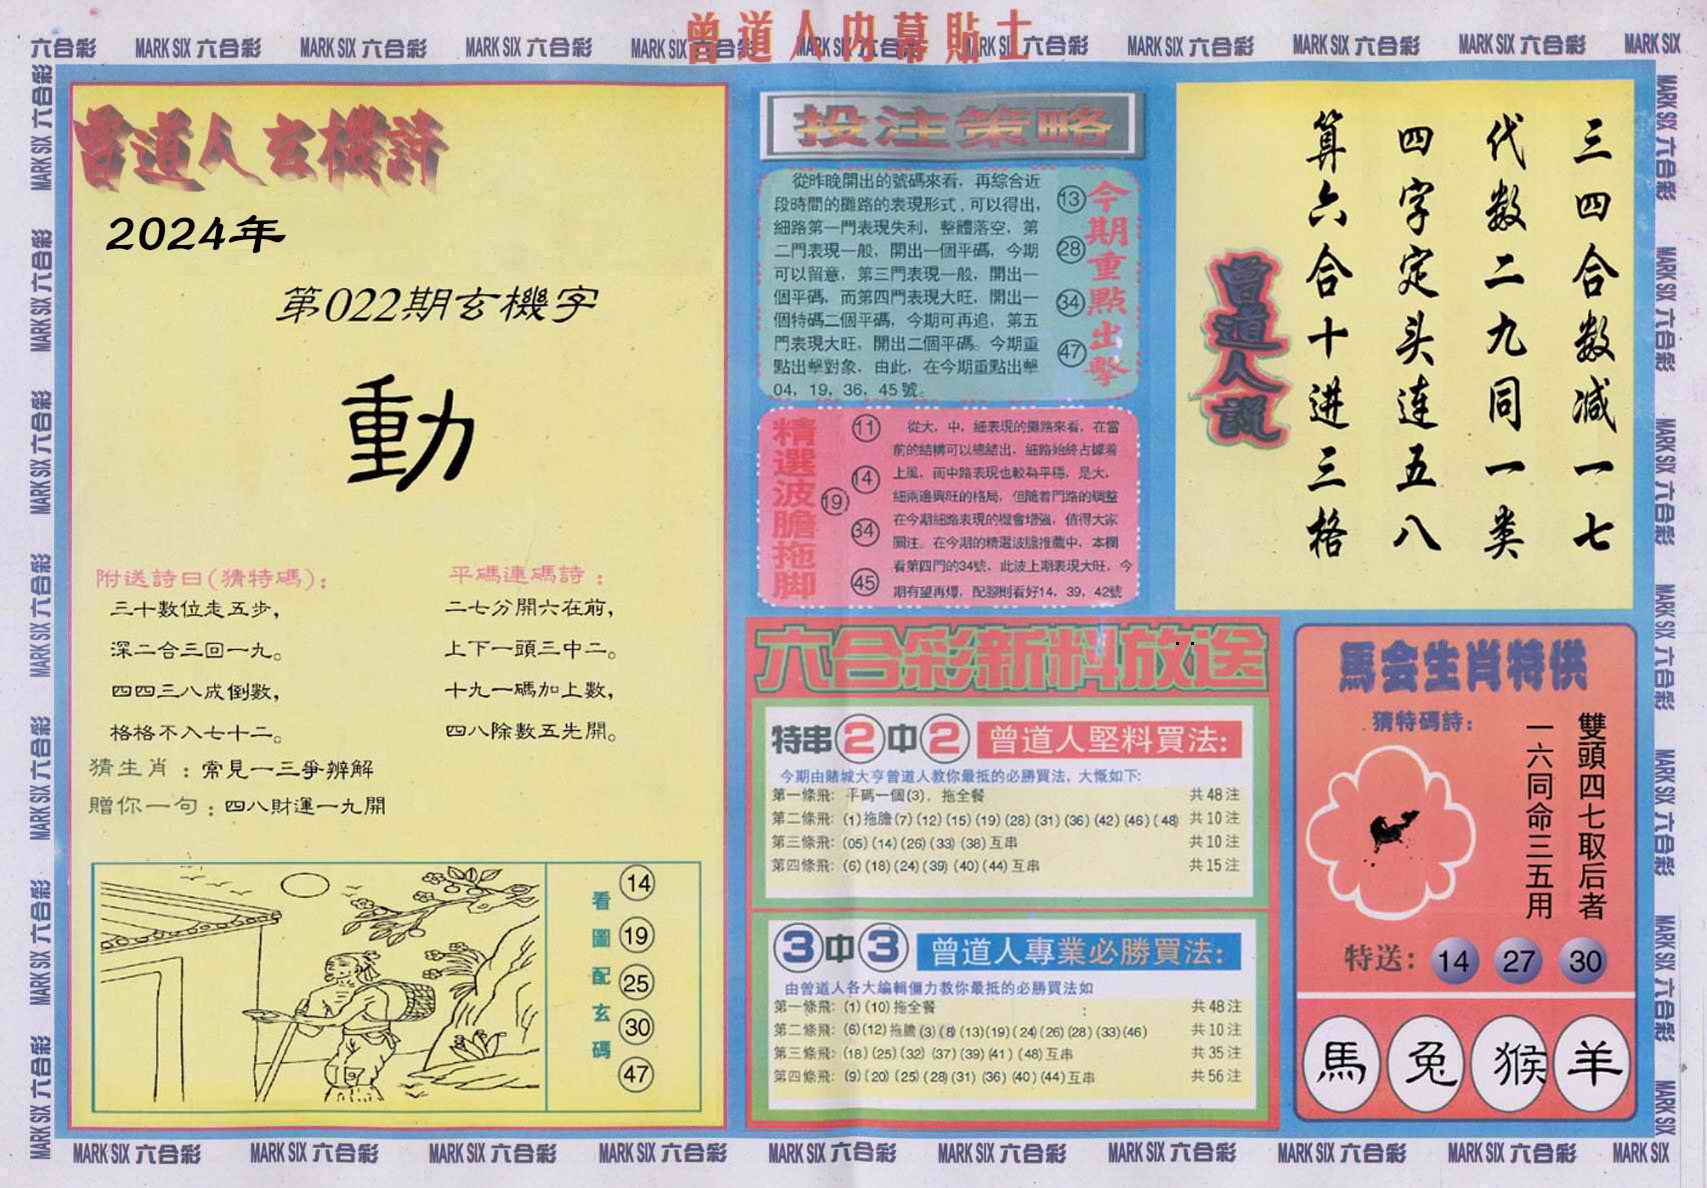 曾道人内幕貼士
六合彩 MARK SIX 六合彩 MARK SIX 六合彩 MARK SIX 六合彩 MARK SIX 六合彩 MARK SIX 六合彩 MARK SIX 六合彩 MARK SIX 六合彩 MARK SIX 六合彩 MARK SIX
曾道人玄機詩
2024年
第022期玄機字
動
附送詩曰(猜特碼):
三十數位走五步,
深二合三回一九。
四四三八成倒數,
格格不入七十二。
平碼連碼詩:
二七分開六在前,
上下一頭三中二。
十九一碼加上數,
四八除數五先開。
猜生肖:常見一三爭辨解
贈你一句:四八財運一九開
看圖配玄碼
14
19
25
30
47
投注策略
從昨晚開出的號碼來看,再綜合近
段時間的攤路的表現形式,可以得出,
細路第一門表現失利,整體落空,第
二門表現一般,開出一個平碼,今期
可以留意,第三門表現一般,開出一
個平碼,而第四門表現大旺,開出一
個特碼二個平碼,今期可再追,第五
門表現大旺,開出二個平碼。今期重
點出擊對象,由此,在今期重點出擊
04,19,36,45號。
13
28
34
47
今期重點出擊
精選波膽拖脚
11
14
19
34
45
從大,中,細表現的攤路來看,在當
前的結構可以總結出,細路始終占據着
上風,而中路表現也較為平穩,是大,
細兩邊興旺的格局,但隨着門路的調整
在今期細路表現的機會增強,值得大家
關注。在今期的精選波膽推薦中,本欄
看第四門的34號,此波上期表現大旺,今
期有望再爆,配腳則看好14,39,42號
三四合数减一七
代数二九同一类
四字定头连五八
算六合十进三格
曾道人説
六合彩新料放送
特串2中2 曾道人堅料買法:
今期由賭城大亨曾道人教你最抵的必勝買法,大慨如下:
第一條飛: 平碼一個(3),拖全餐 共48注
第二條飛: (1)拖膽(7)(12)(15)(19)(28)(31)(36)(42)(46)(48) 共10注
第三條飛: (05)(14)(26)(33)(38)互串 共10注
第四條飛: (6)(18)(24)(39)(40)(44)互串 共15注
3中3 曾道人專業必勝買法:
由曾道人各大編輯僵力教你最抵的必勝買法如
第一條飛: (1)(10)拖全餐 : 共48注
第二條飛: (6)(12)拖膽(3)(8)(13)(19)(24)(26)(28)(33)(46) 共10注
第三條飛: (18)(25)(32)(37)(39)(41)(48)互串 共35注
第四條飛: (9)(20)(25)(28)(31)(36)(40)(44)互串 共56注
馬会生肖特供
猜特碼詩:
雙頭四七取后者
一六同命三五用
特送: 14 27 30
馬 兔 猴 羊
MARK SIX 六合彩 MARK SIX 六合彩 MARK SIX 六合彩 MARK SIX 六合彩 MARK SIX 六合彩 MARK SIX 六合彩 MARK SIX 六合彩 MARK SIX 六合彩 MARK SIX 六合彩 MARK SIX